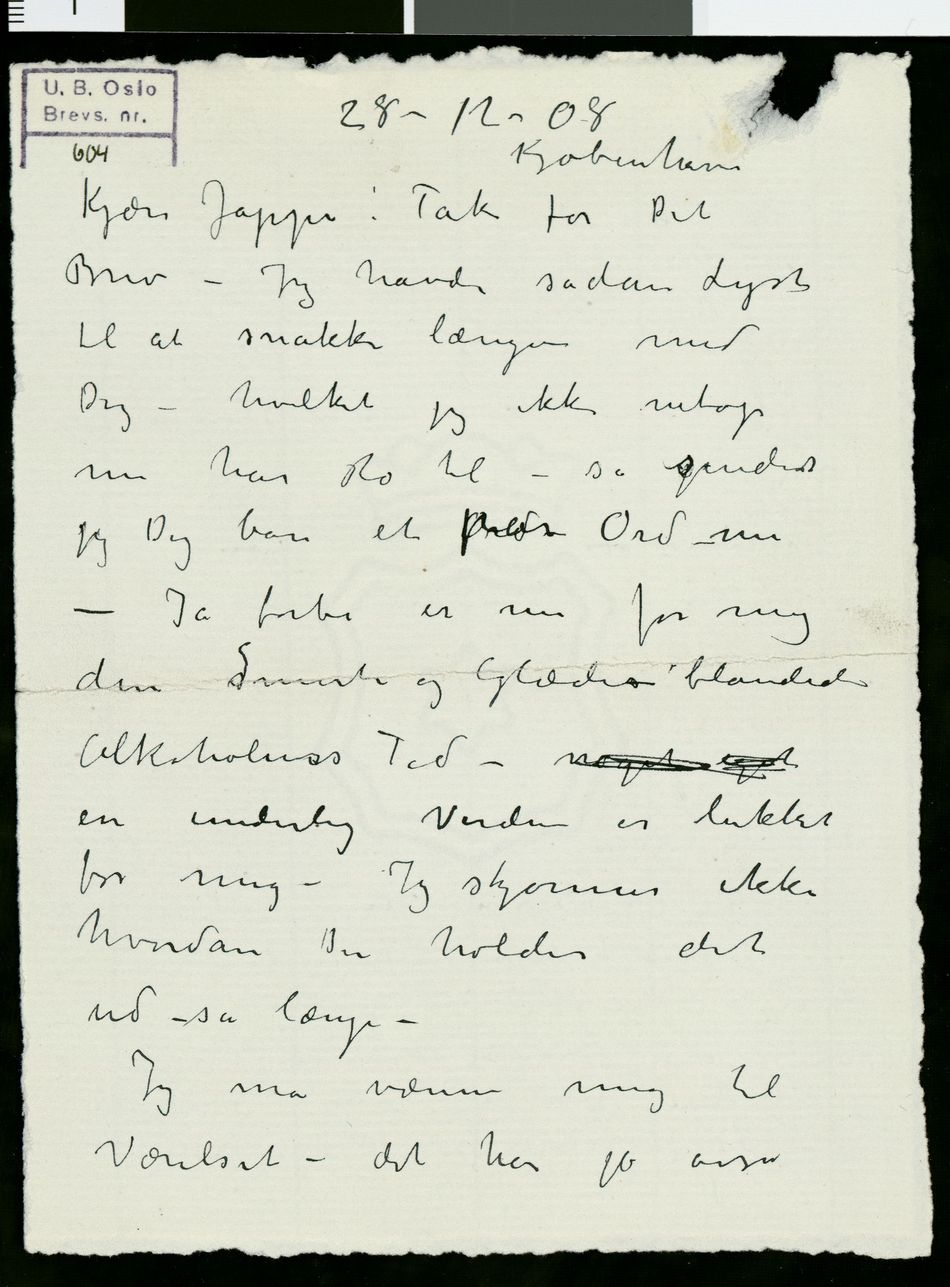 U. B. Oslo
Brevs. nr.
604
28 – 12 – 08
Kjøbenhavn
Kjære Jappe! Tak for Dit
Brev – Jeg havde sådan Lyst
til at snakke længe med
Dig – hvilket jeg ikke netop
nu har Ro til – så sender
jeg Dig bare et Ord – nu
– Ja forbi er nu for mig
den Smerte og Glædes blandede
Alkoholens Tid – noget eget
en underlig Verden er lukket
for mig – Jeg skjønner ikke
hvordan Du holder det
ud – så længe –
Jeg må vænne mig til
Værelset – det har jo også